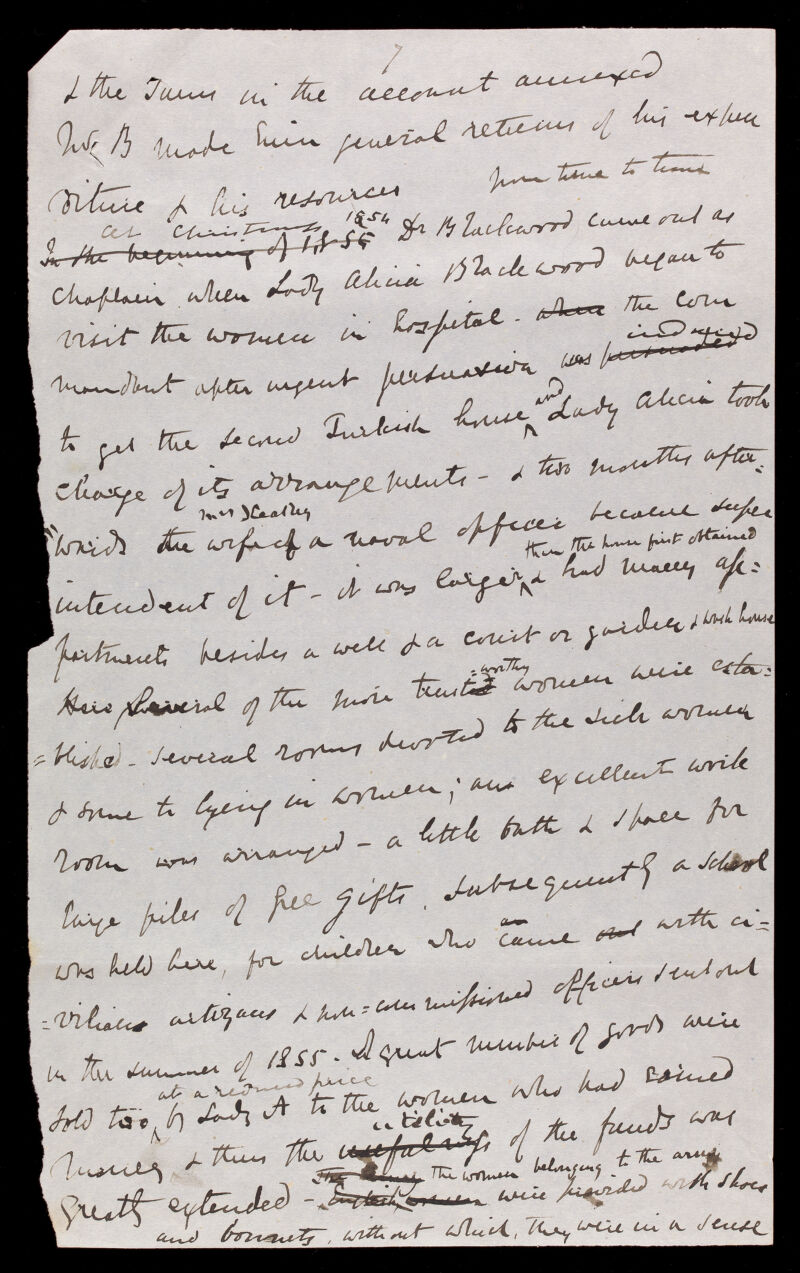 7
& the Turns in the account annexed
Mr B made Smin general returns of his expen
diture & his resources from time to time
at Christmas 1854
In the beginning of 1855 Dr Blackwood came out as
chaplain, when Lady Alicia Blackwood began to
visit the women in hospital - when the com
induced
mandant after urgent persuasion was persuaded
to get the second Turkish house and Lady Alicia took
charge of its arrangements - & two months after=
Mrs Keatley
wards the wife of a naval officer became super
than the house first obtained
intendent of it - it was larger & had many ap=
partments besides a well & a court or garden & wash house
Here several of the more trusted =worthy women were esta=
=blished - several rooms devoted to the sick women
& some to lying in women; an excellent work
room was arranged - a little bath & space for
large piles of free gifts. Subsequently a school
was held here, for children who came out with ci=
=vilian artizans & non=commissioned officers sent out
in the summer of 1855 - A great number of goods were
at a reduced price
sold too by Lady A to the women who had earned
utility
money & thus the usefulness of the funds was
the women belonging to the army
greatly extended - English women were provided with shoes
and bonnets, without which, they were in a sense